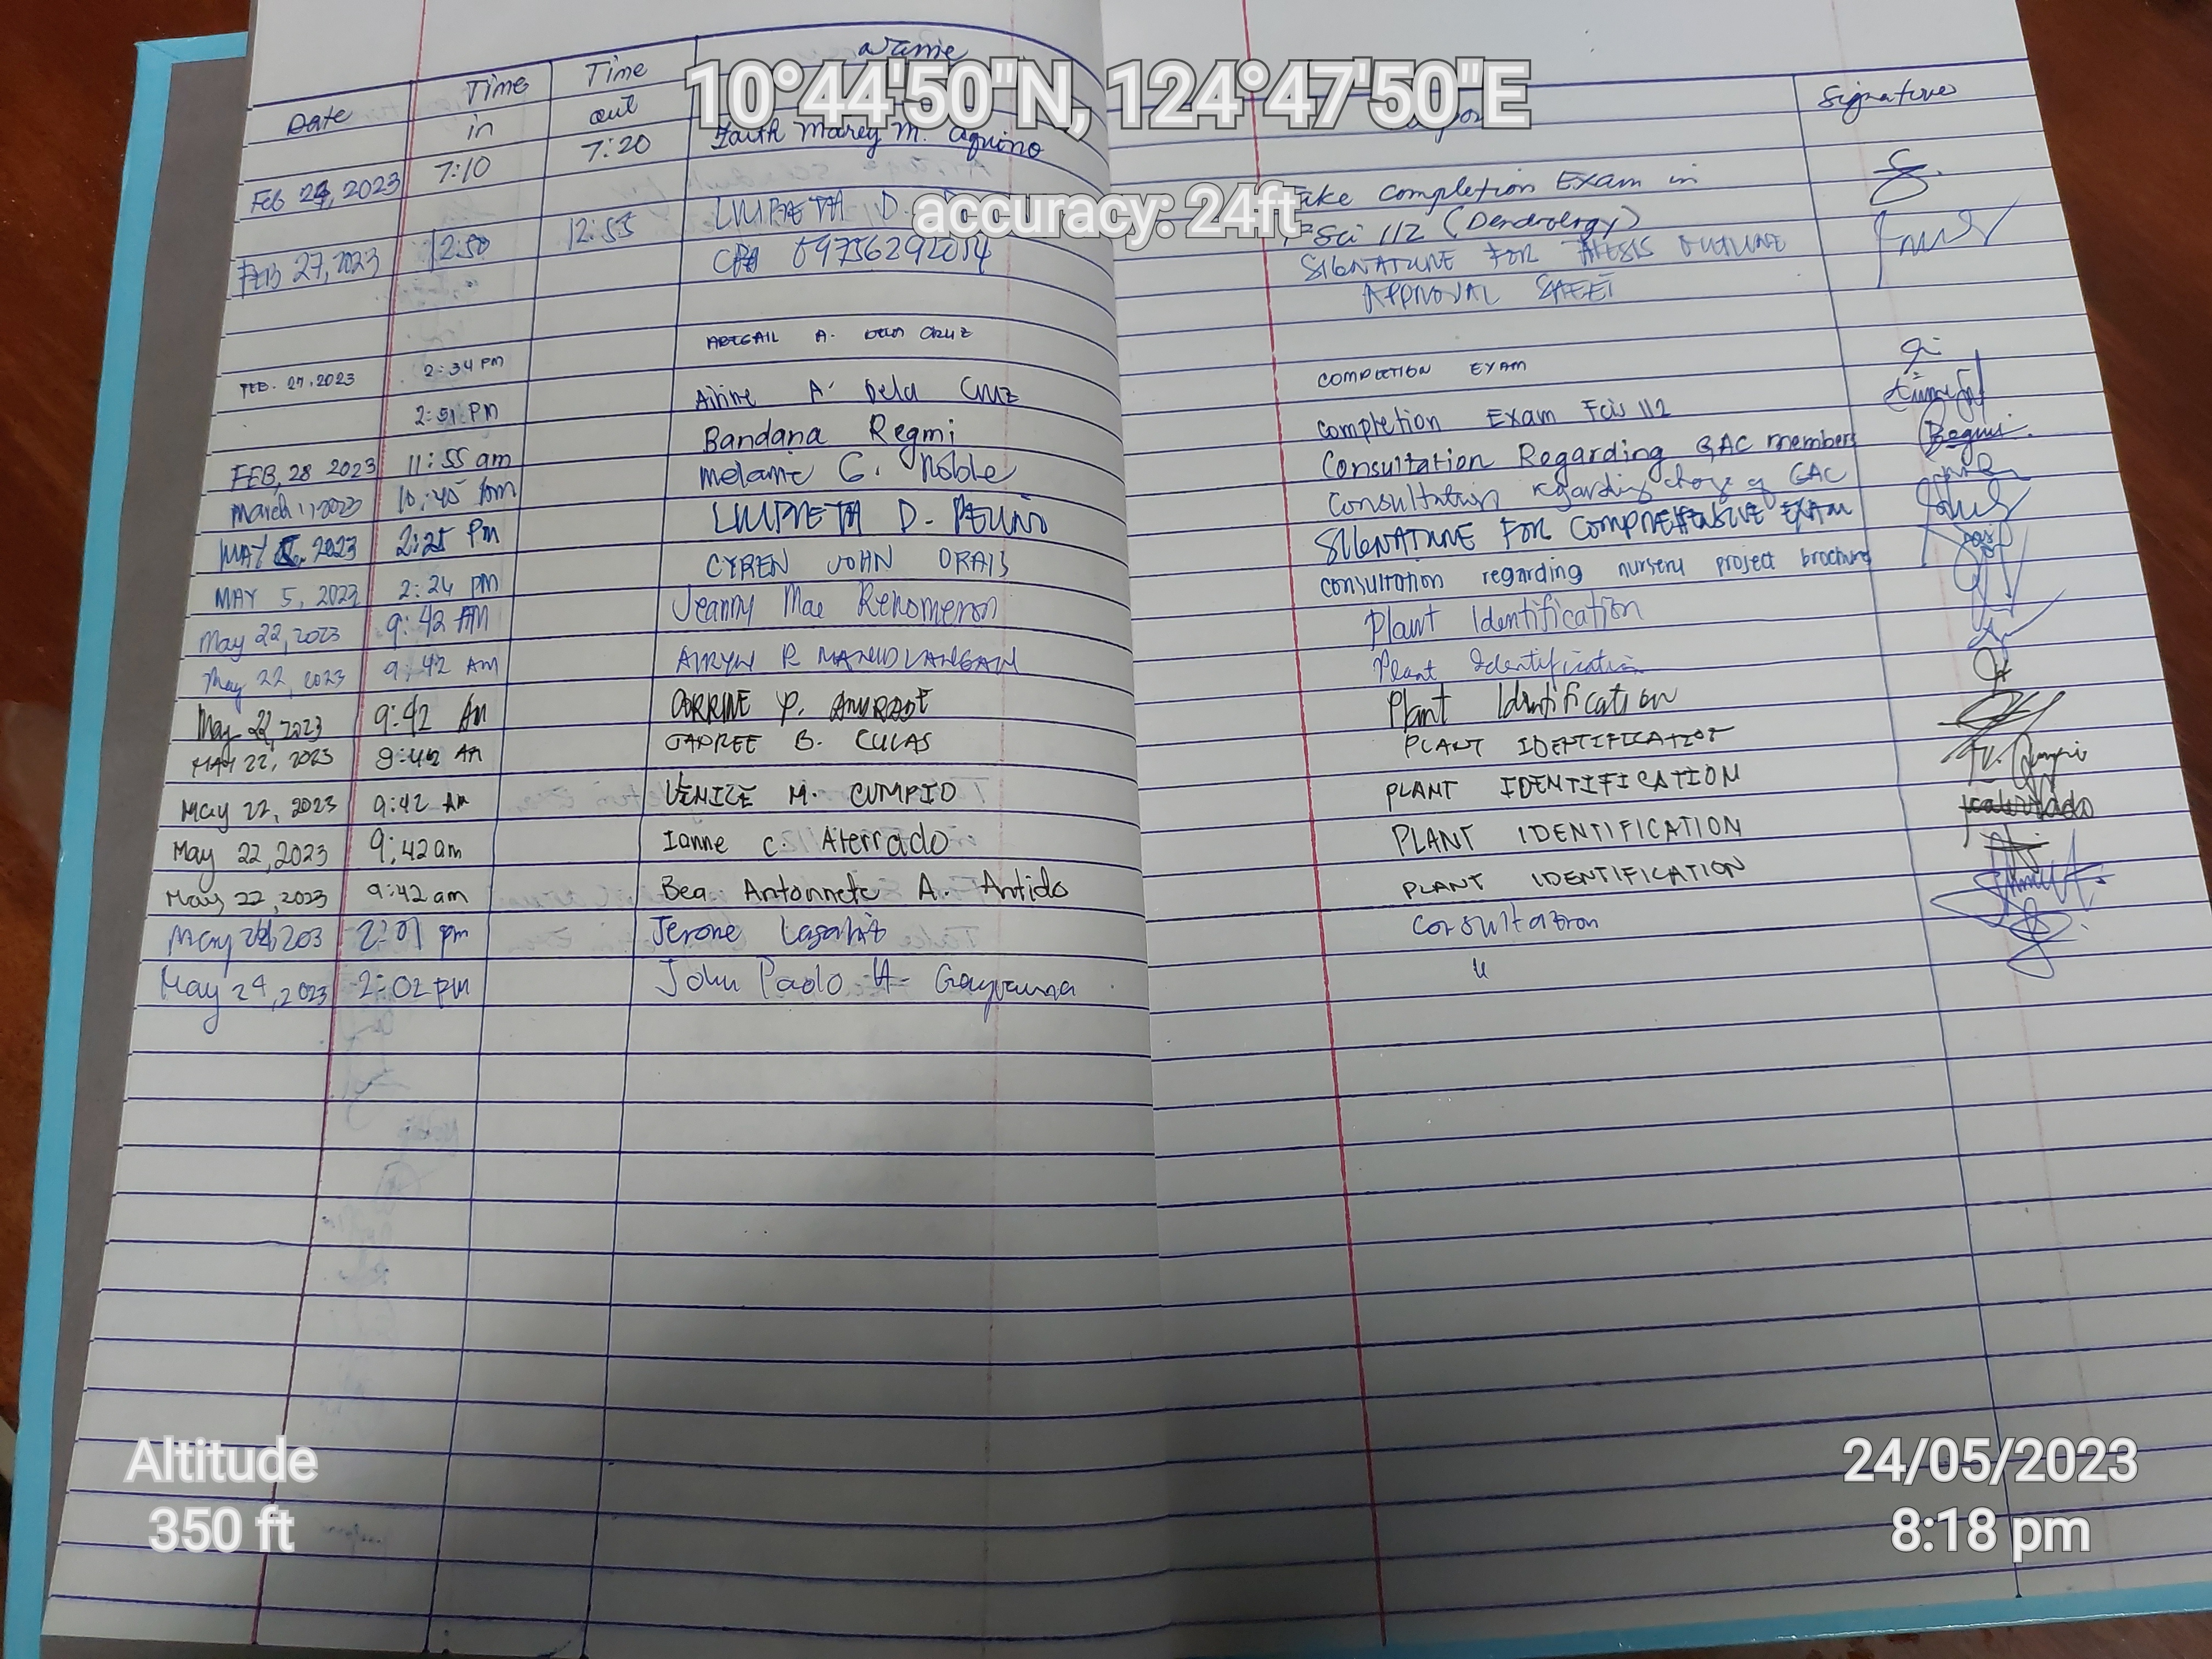 10°44'50"N, 124°47'50"E
accuracy: 24ft
Date Time in Time out Name Signature
Feb 24, 2023 7:10 7:20 Faith Marey M. Aquino Take Completion Exam in
FSci 112 (Dendrology)
FEB 27, 2023 12:50 12:55 D. SIGNATURE FOR THESIS OUTLINE
APPROVAL SHEET
FEB. 27, 2023 2:34 PM ABIGAIL A. DELA CRUZ COMPLETION EXAM
2:51 PM Airine A. Dela Cruz Completion Exam Fcis 112
FEB, 28 2023 11:55 am Bandana Regmi Consultation Regarding GAC members
March 1, 2023 10:45 Melanie G. Noble Consultation regarding change of GAC
MAY 5, 2023 2:25 PM D. SIGNATURE FOR COMPREHENSIVE EXAM
MAY 5, 2023 2:24 pm CYREN JOHN ORAIS consultation regarding nursery project brochure
May 22, 2023 9:42 AM Jeanny Mae Renomeron Plant Identification
May 22, 2023 9:42 AM Plant Identification
May 22, 2023 9:42 AM Plant Identification
MAY 22, 2023 9:42 AM B. CULAS PLANT IDENTIFICATION
May 22, 2023 9:42 AM VENICE M. CUMPIO PLANT IDENTIFICATION
May 22, 2023 9:42 am Ianne C. Aterrado PLANT IDENTIFICATION
May 22, 2023 9:42 am Bea Antonnete A. Antido PLANT IDENTIFICATION
May 24, 203 2:01 pm Jerone Consultation
May 24, 2023 2:02 pm John Paolo "
Altitude
350 ft
24/05/2023
8:18 pm